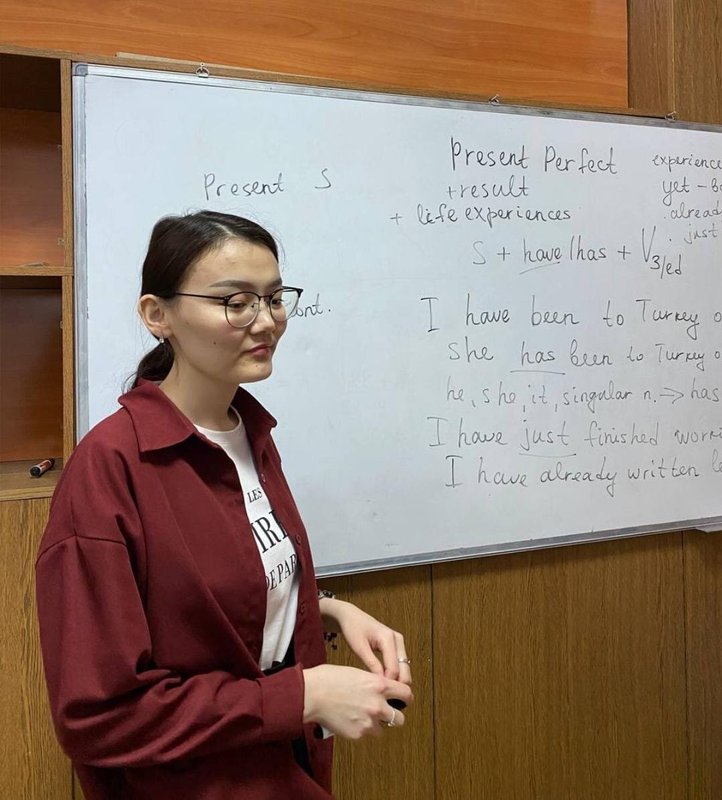 Present S
ont.
Present Perfect
+result
+ life experiences
S + have/has + V3/ed
experience
yet - B
already
just
I have been to Turkey o
She has been to Turkey o
he, she, it, singular n. → has
I have just finished worki
I have already written l
LES
IRI
DEPAR